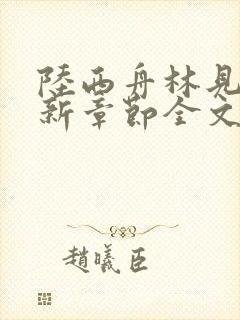 陸西舟林見
新章節全文
趙曦臣